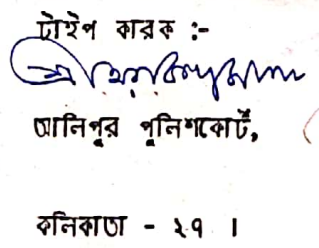 টাইপ কারক :-
আলিপুর পুলিশকোর্ট,
কলিকাতা - ২৭ ।